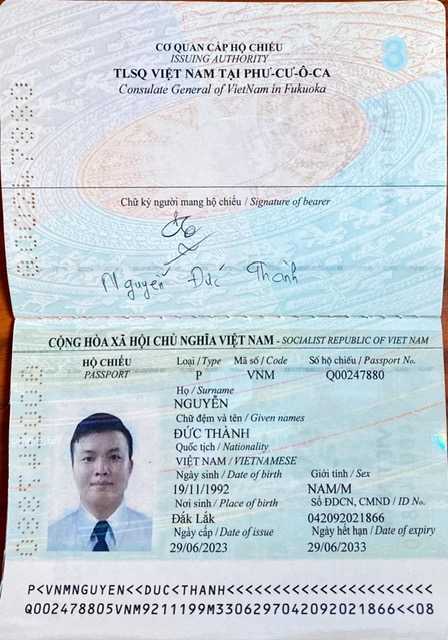 3
CƠ QUAN CẤP HỘ CHIẾU
ISSUING AUTHORITY
TLSQ VIỆT NAM TẠI PHƯ-CƯ-Ô-CA
Consulate General of VietNam in Fukuoka
Chữ ký người mang hộ chiếu / Signature of bearer
Nguyễn Đức Thành
CỘNG HÒA XÃ HỘI CHỦ NGHĨA VIỆT NAM - SOCIALIST REPUBLIC OF VIET NAM
HỘ CHIẾU
PASSPORT
Loại / Type Mã số / Code Số hộ chiếu / Passport No.
P VNM Q00247880
Họ / Surname
NGUYỄN
Chữ đệm và tên / Given names
ĐỨC THÀNH
Quốc tịch / Nationality
VIỆT NAM / VIETNAMESE
Ngày sinh / Date of birth Giới tính / Sex
19/11/1992 NAM/M
Nơi sinh / Place of birth Số ĐDCN, CMND / ID No.
Đắk Lắk 042092021866
Ngày cấp / Date of issue Ngày hết hạn / Date of expiry
29/06/2023 29/06/2033
P<VNMNGUYEN<<DUC<THANH<<<<<<<<<<<<<<<<<<<<<<
Q002478805VNM9211199M3306297042092021866<<08